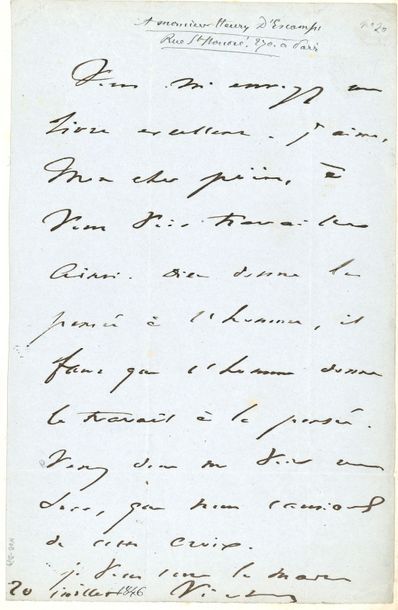 A monsieur Henry D'Escamps n° 20
Rue St-honoré. 290. a Paris
Vous m'envoyez un
livre excellent. j'aime,
Mon cher poëte, à
Vous voir travailler
Ainsi. Dieu donne la
pensée à l'homme, il
faut que l'homme donne
le travail à la pensée.
Venez donc me voir un
soir, que nous causions
de
je vous serre la main
Victor
20 juillet 1846